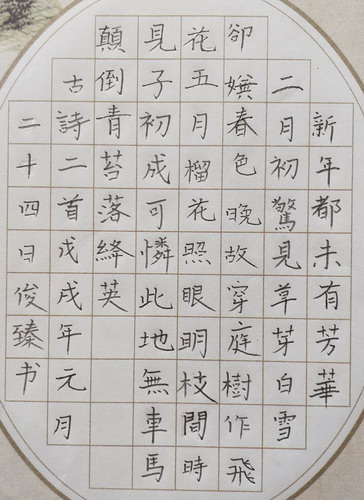 新年都未有芳華
二月初驚見草芽白雪
卻嫌春色晚故穿庭樹作飛
花五月榴花照眼明枝間時
見子初成可憐此地無車馬
顛倒青苔落絳英
古詩二首戊戌年元月
二十四日俊臻书